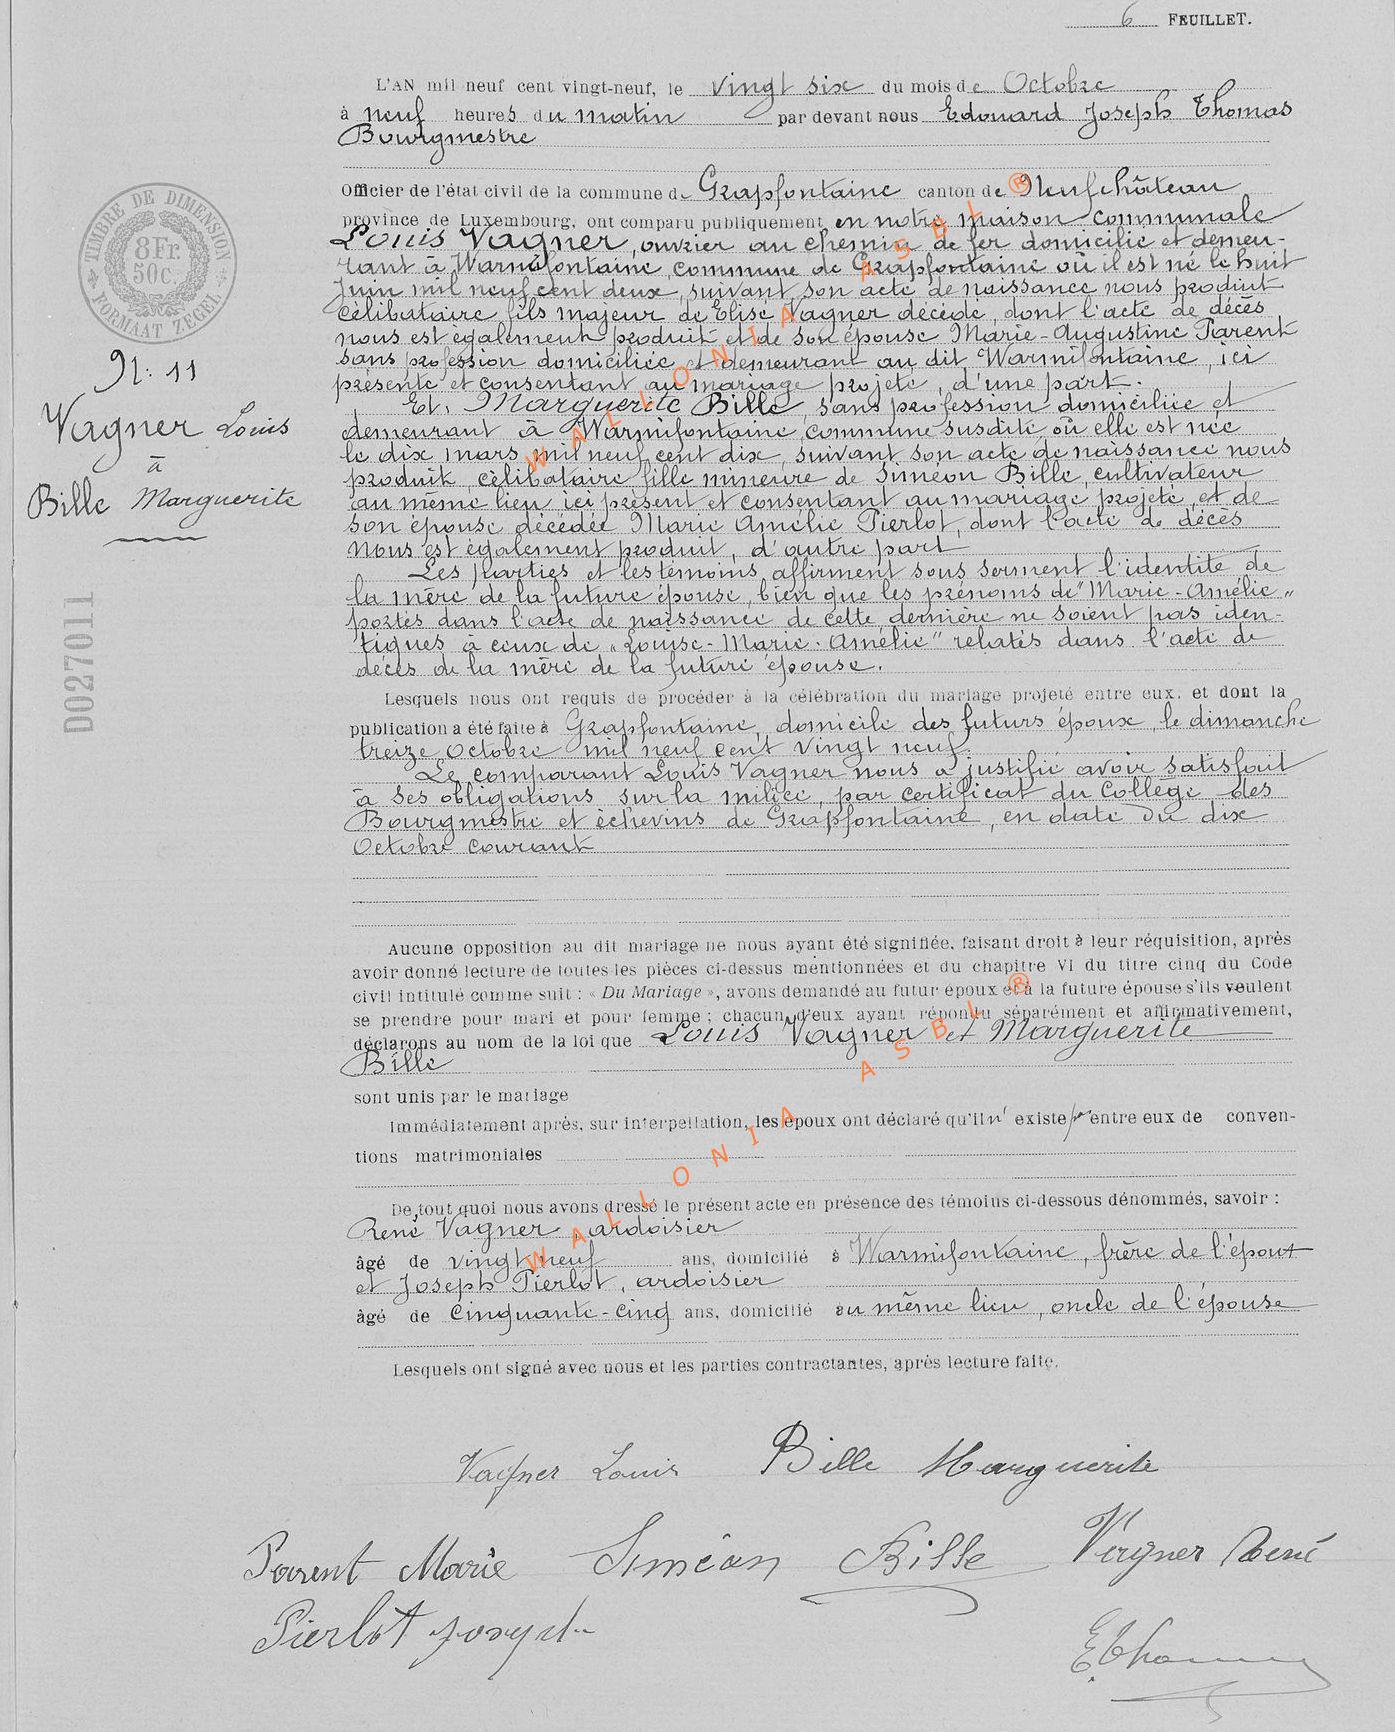 6 FEUILLET.
L'AN mil neuf cent vingt-neuf, le vingt six du mois de Octobre
à neuf heures du matin par devant nous Edouard Joseph Thomas
Bourgmestre
Officier de l'état civil de la commune de Grapfontaine canton de Neufchâteau
province de Luxembourg, ont comparu publiquement en notre maison communale
Louis Vagner, ouvrier au chemin de fer domicilié et demeu-
rant à Warmifontaine, commune de Grapfontaine où il est né le huit
Juin mil neuf cent deux, suivant son acte de naissance nous produit
célibataire fils majeur de Elise Vagner décédé, dont l'acte de décès
nous est également produit et de son épouse Marie-Augustine Parent
sans profession domiciliée et demeurant au dit Warmifontaine, ici
présente et consentant au mariage projeté, d'une part.
Et, Marguerite Bille, sans profession domiciliée et
demeurant à Warmifontaine, commune susdite où elle est née
le dix mars mil neuf cent dix, suivant son acte de naissance nous
produit, célibataire fille mineure de Siméon Bille, cultivateur
au même lieu ici présent et consentant au mariage projeté, et de
son épouse décédée Marie Amélie Pierlot, dont l'acte de décès
nous est également produit, d'autre part
Les parties et les témoins affirment sous serment l'identité de
la mère de la future épouse, bien que les prénoms de "Marie-Amélie"
portés dans l'acte de naissance de cette dernière ne soient pas iden-
tiques à ceux de "Louise-Marie-Amélie" relatés dans l'acte de
décès de la mère de la future épouse.
Lesquels nous ont requis de procéder à la célébration du mariage projeté entre eux, et dont la
publication a été faite à Grapfontaine, domicile des futurs époux, le dimanche
treize Octobre mil neuf cent vingt neuf.
Le comparant Louis Vagner nous a justifié avoir satisfait
à ses obligations sur la milice, par certificat du Collège des
Bourgmestre et échevins de Grapfontaine, en date du dix
Octobre courant
Aucune opposition au dit mariage ne nous ayant été signifiée, faisant droit à leur réquisition, après
avoir donné lecture de toutes les pièces ci-dessus mentionnées et du chapitre VI du titre cinq du Code
civil intitulé comme suit : « Du Mariage », avons demandé au futur époux et à la future épouse s'ils veulent
se prendre pour mari et pour femme ; chacun d'eux ayant répondu séparément et affirmativement,
déclarons au nom de la loi que Louis Vagner et Marguerite
Bille
sont unis par le mariage
Immédiatement après, sur interpellation, les époux ont déclaré qu'il n' existe pas entre eux de conven-
tions matrimoniales
De tout quoi nous avons dressé le présent acte en présence des témoins ci-dessous dénommés, savoir :
René Vagner, ardoisier
âgé de vingt neuf ans, domicilié à Warmifontaine, frère de l'époux
et Joseph Pierlot, ardoisier
âgé de cinquante-cinq ans, domicilié au même lieu, oncle de l'épouse
Lesquels ont signé avec nous et les parties contractantes, après lecture faite.
Vagner Louis Bille Marguerite
Parent Marie Siméon Bille Vagner René
Pierlot Joseph
E Thomas
TIMBRE DE DIMENSION
8 Fr.
50 c.
FORMAAT ZEGEL
N: 11
Vagner Louis
à
Bille Marguerite
D027011
WALLONIA ASBL ®
WALLONIA ASBL ®